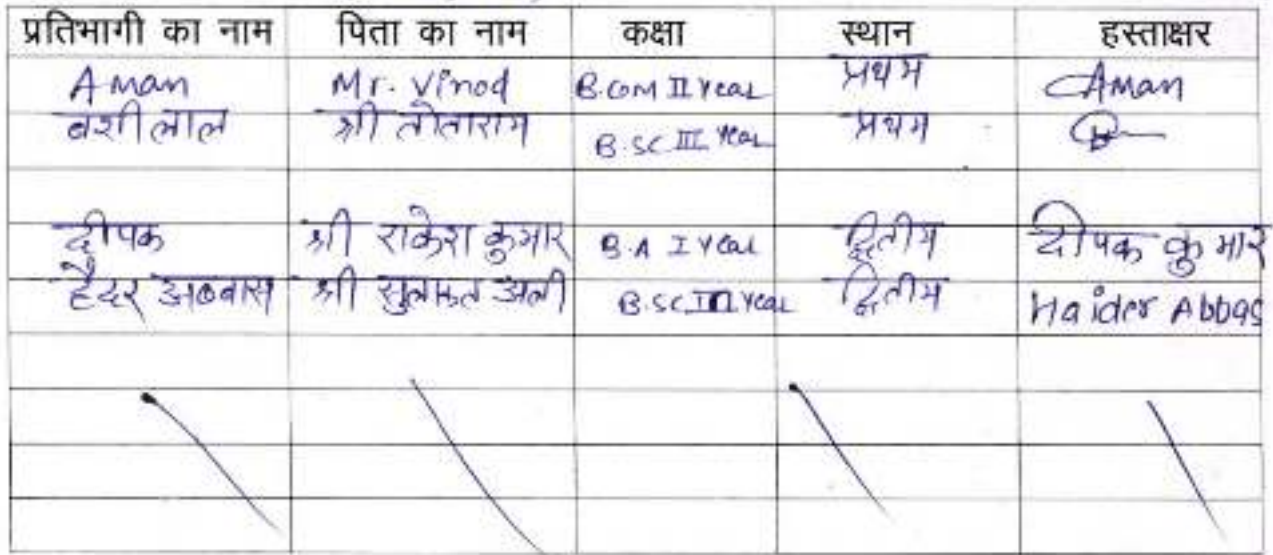 प्रतिभागी का नाम पिता का नाम कक्षा स्थान हस्ताक्षर
Aman Mr. Vinod B.COM II Year प्रथम Aman
बंशीलाल श्री तोताराम B.SC III Year प्रथम
दीपक श्री राकेश कुमार B.A I Year द्वितीय दीपक कुमार
हैदर अब्बास श्री अली B.SC III Year द्वितीय Haider Abbas